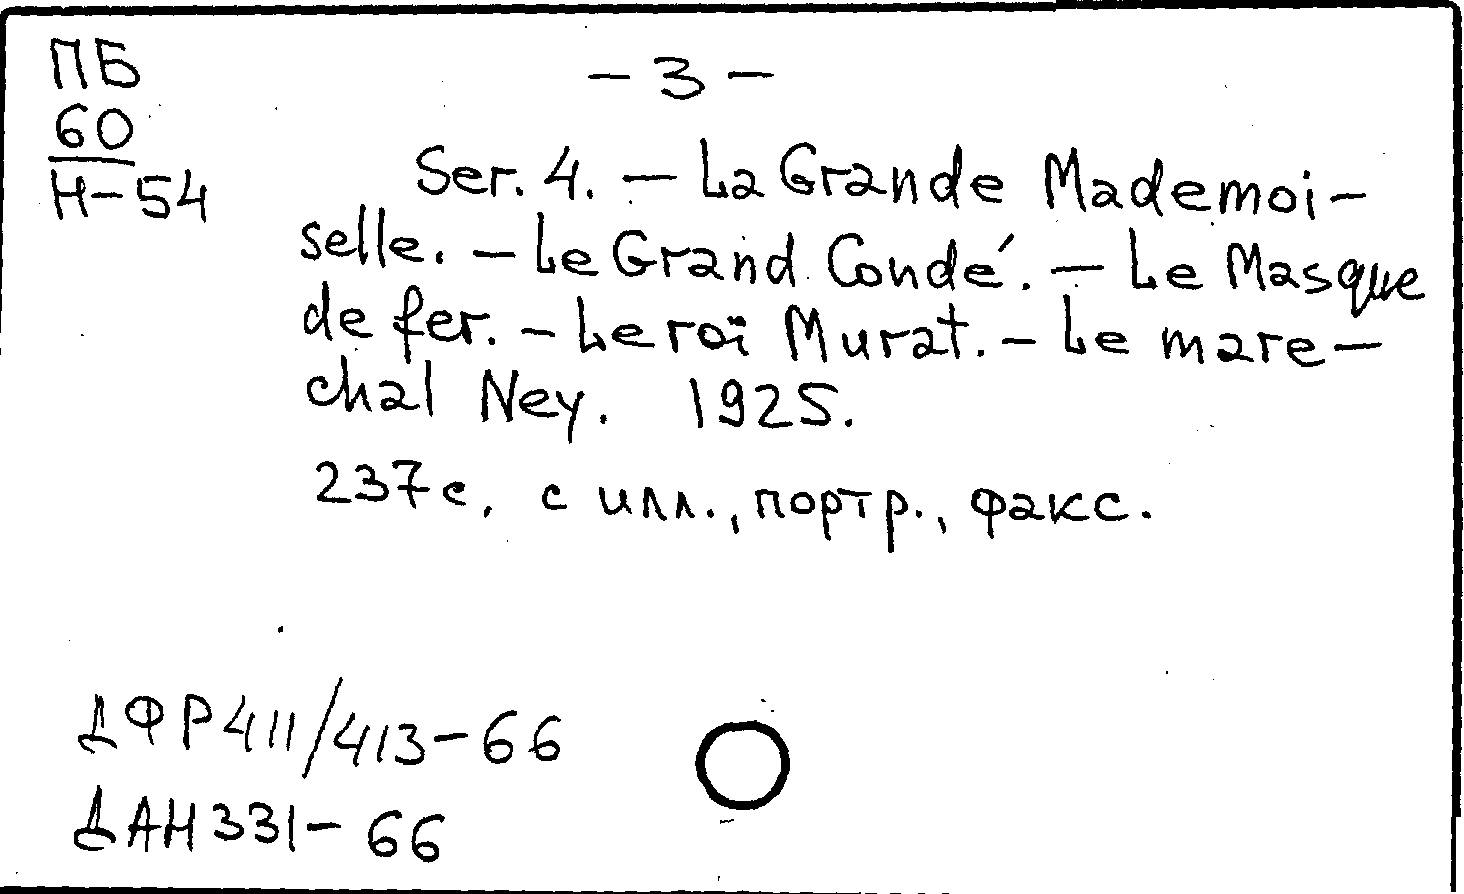 ПБ
60
Н-54
- 3 -
Ser. 4. — La Grande Mademoi-
selle. — Le Grand Condé. — Le Masque
de fer. — Le roï Murat. — Le mare-
chal Ney. 1925.
237 с. с илл., портр., факс.
ДФР 411/413-66
ДАН 331-66